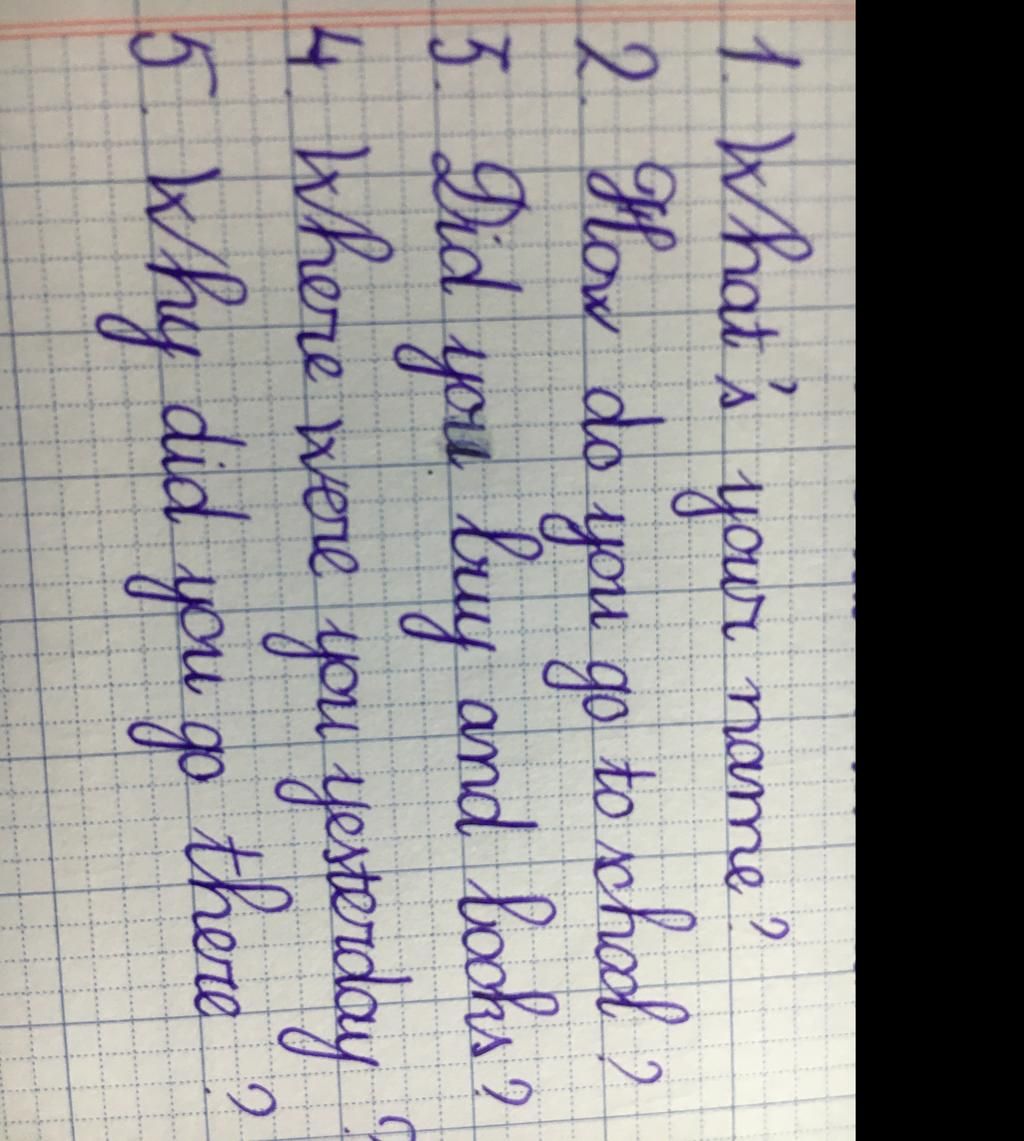 1. What's your name?
2. How do you go to school?
3. Did you buy and books?
4. Where were you yesterday?
5. Why did you go there?